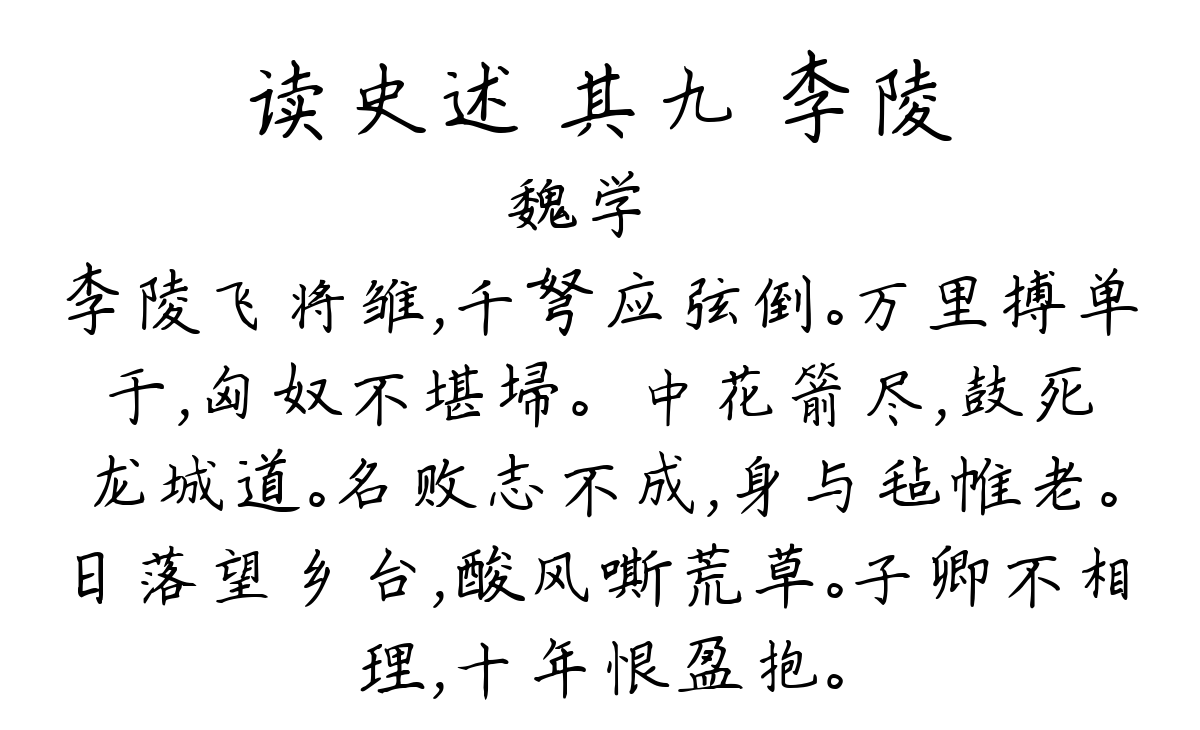 读史述 其九 李陵
魏学
李陵飞将雏,千弩应弦倒。万里搏单
于,匈奴不堪埽。中花箭尽,鼓死
龙城道。名败志不成,身与毡帷老。
日落望乡台,酸风嘶荒草。子卿不相
理,十年恨盈抱。